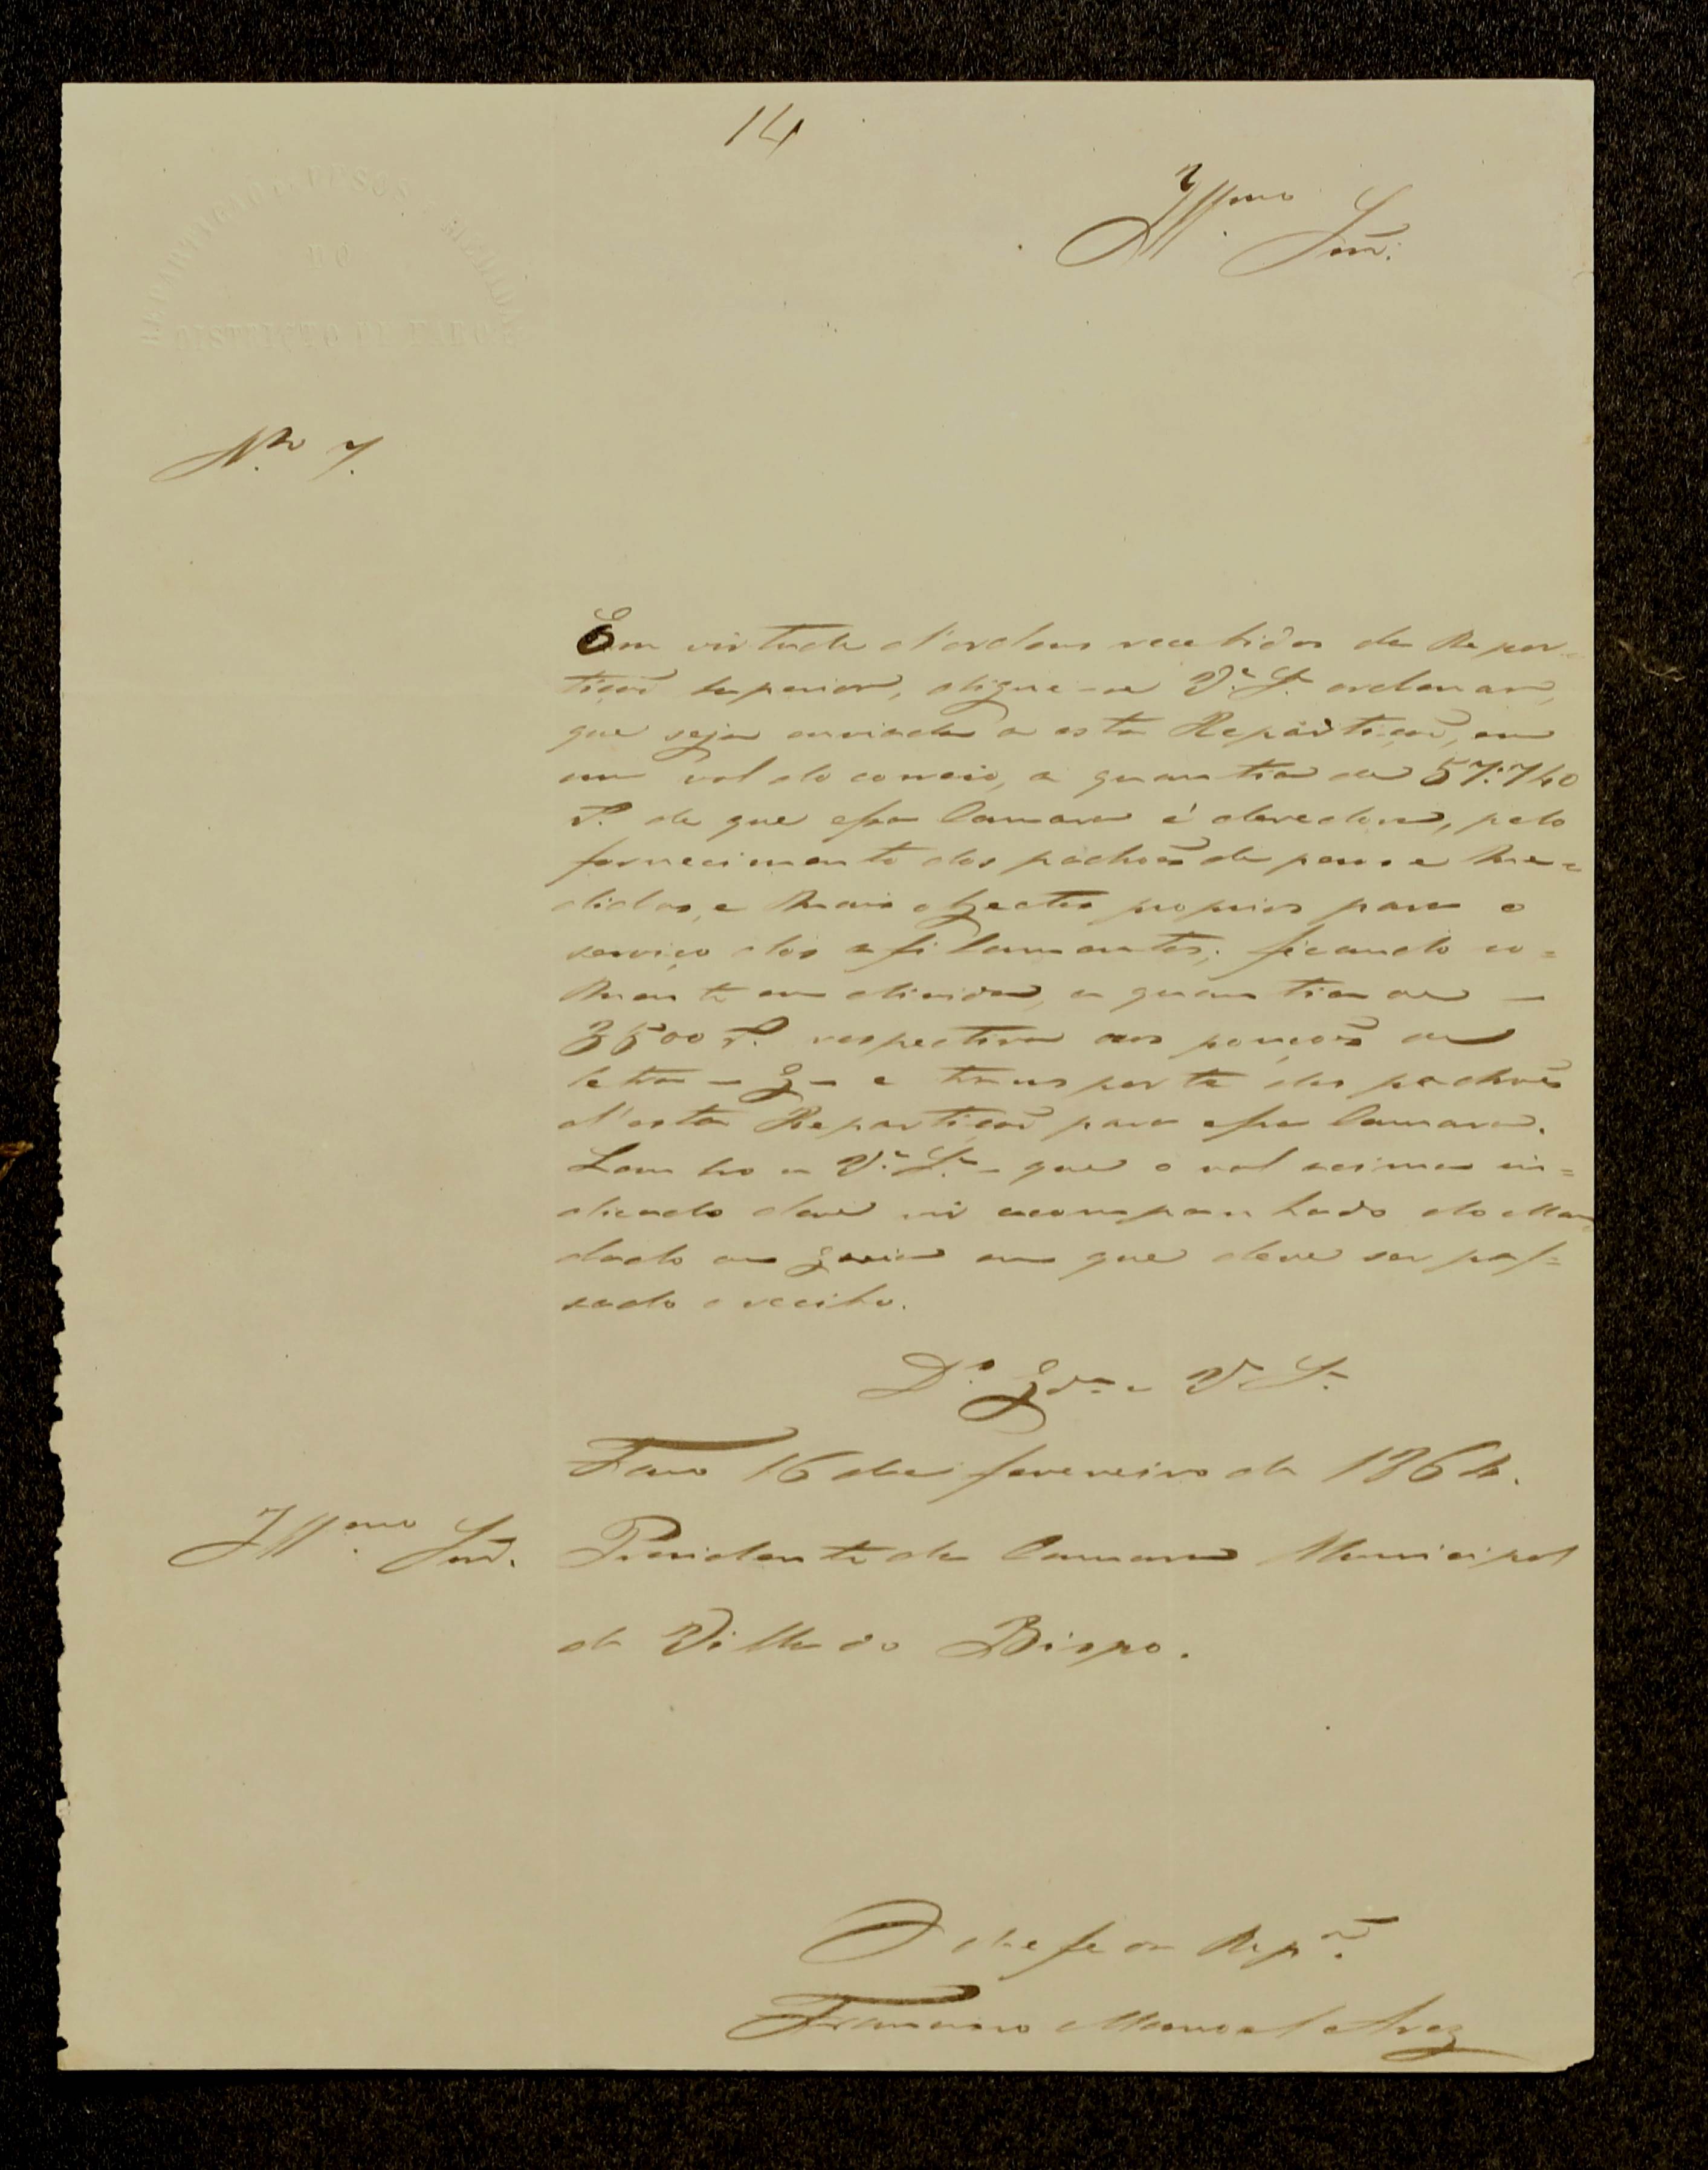 14
Ill.mo Snr.
REPARTIÇÃO DE PESOS E MEDIDAS
DO
DISTRICTO DE FARO
N.ro 7.
Em virtude d'ordens recebidas da Repar-
tição superior, digne-se V.ª S.ª ordenar,
que seja enviada a esta Repartição, em
um val do correio, a quantia de 57:740
r.s de que essa Camara é devedora, pelo
fornecimento dos padrões de pesos e me-
didas, e mais objectos proprios para o
serviço dos afilamentos; ficando so-
mente em divida, a quantia de —
3500 r.s respectiva aos ponções de
letra — g — e transporte dos padrões
d'esta Repartição para essa Camara.
Lembro a V.ª S.ª — que o val acima in-
dicado deve vir acompanhado do Man-
dado ou guia em que deve ser pas-
sado o recibo.
D.s G.de a V. S.ª
Faro 16 de fevereiro de 1864.
Ill.mo Snr. Presidente da Camara Municipal
da Villa do Bispo.
O chefe da Rep.ão
Francisco Manoel